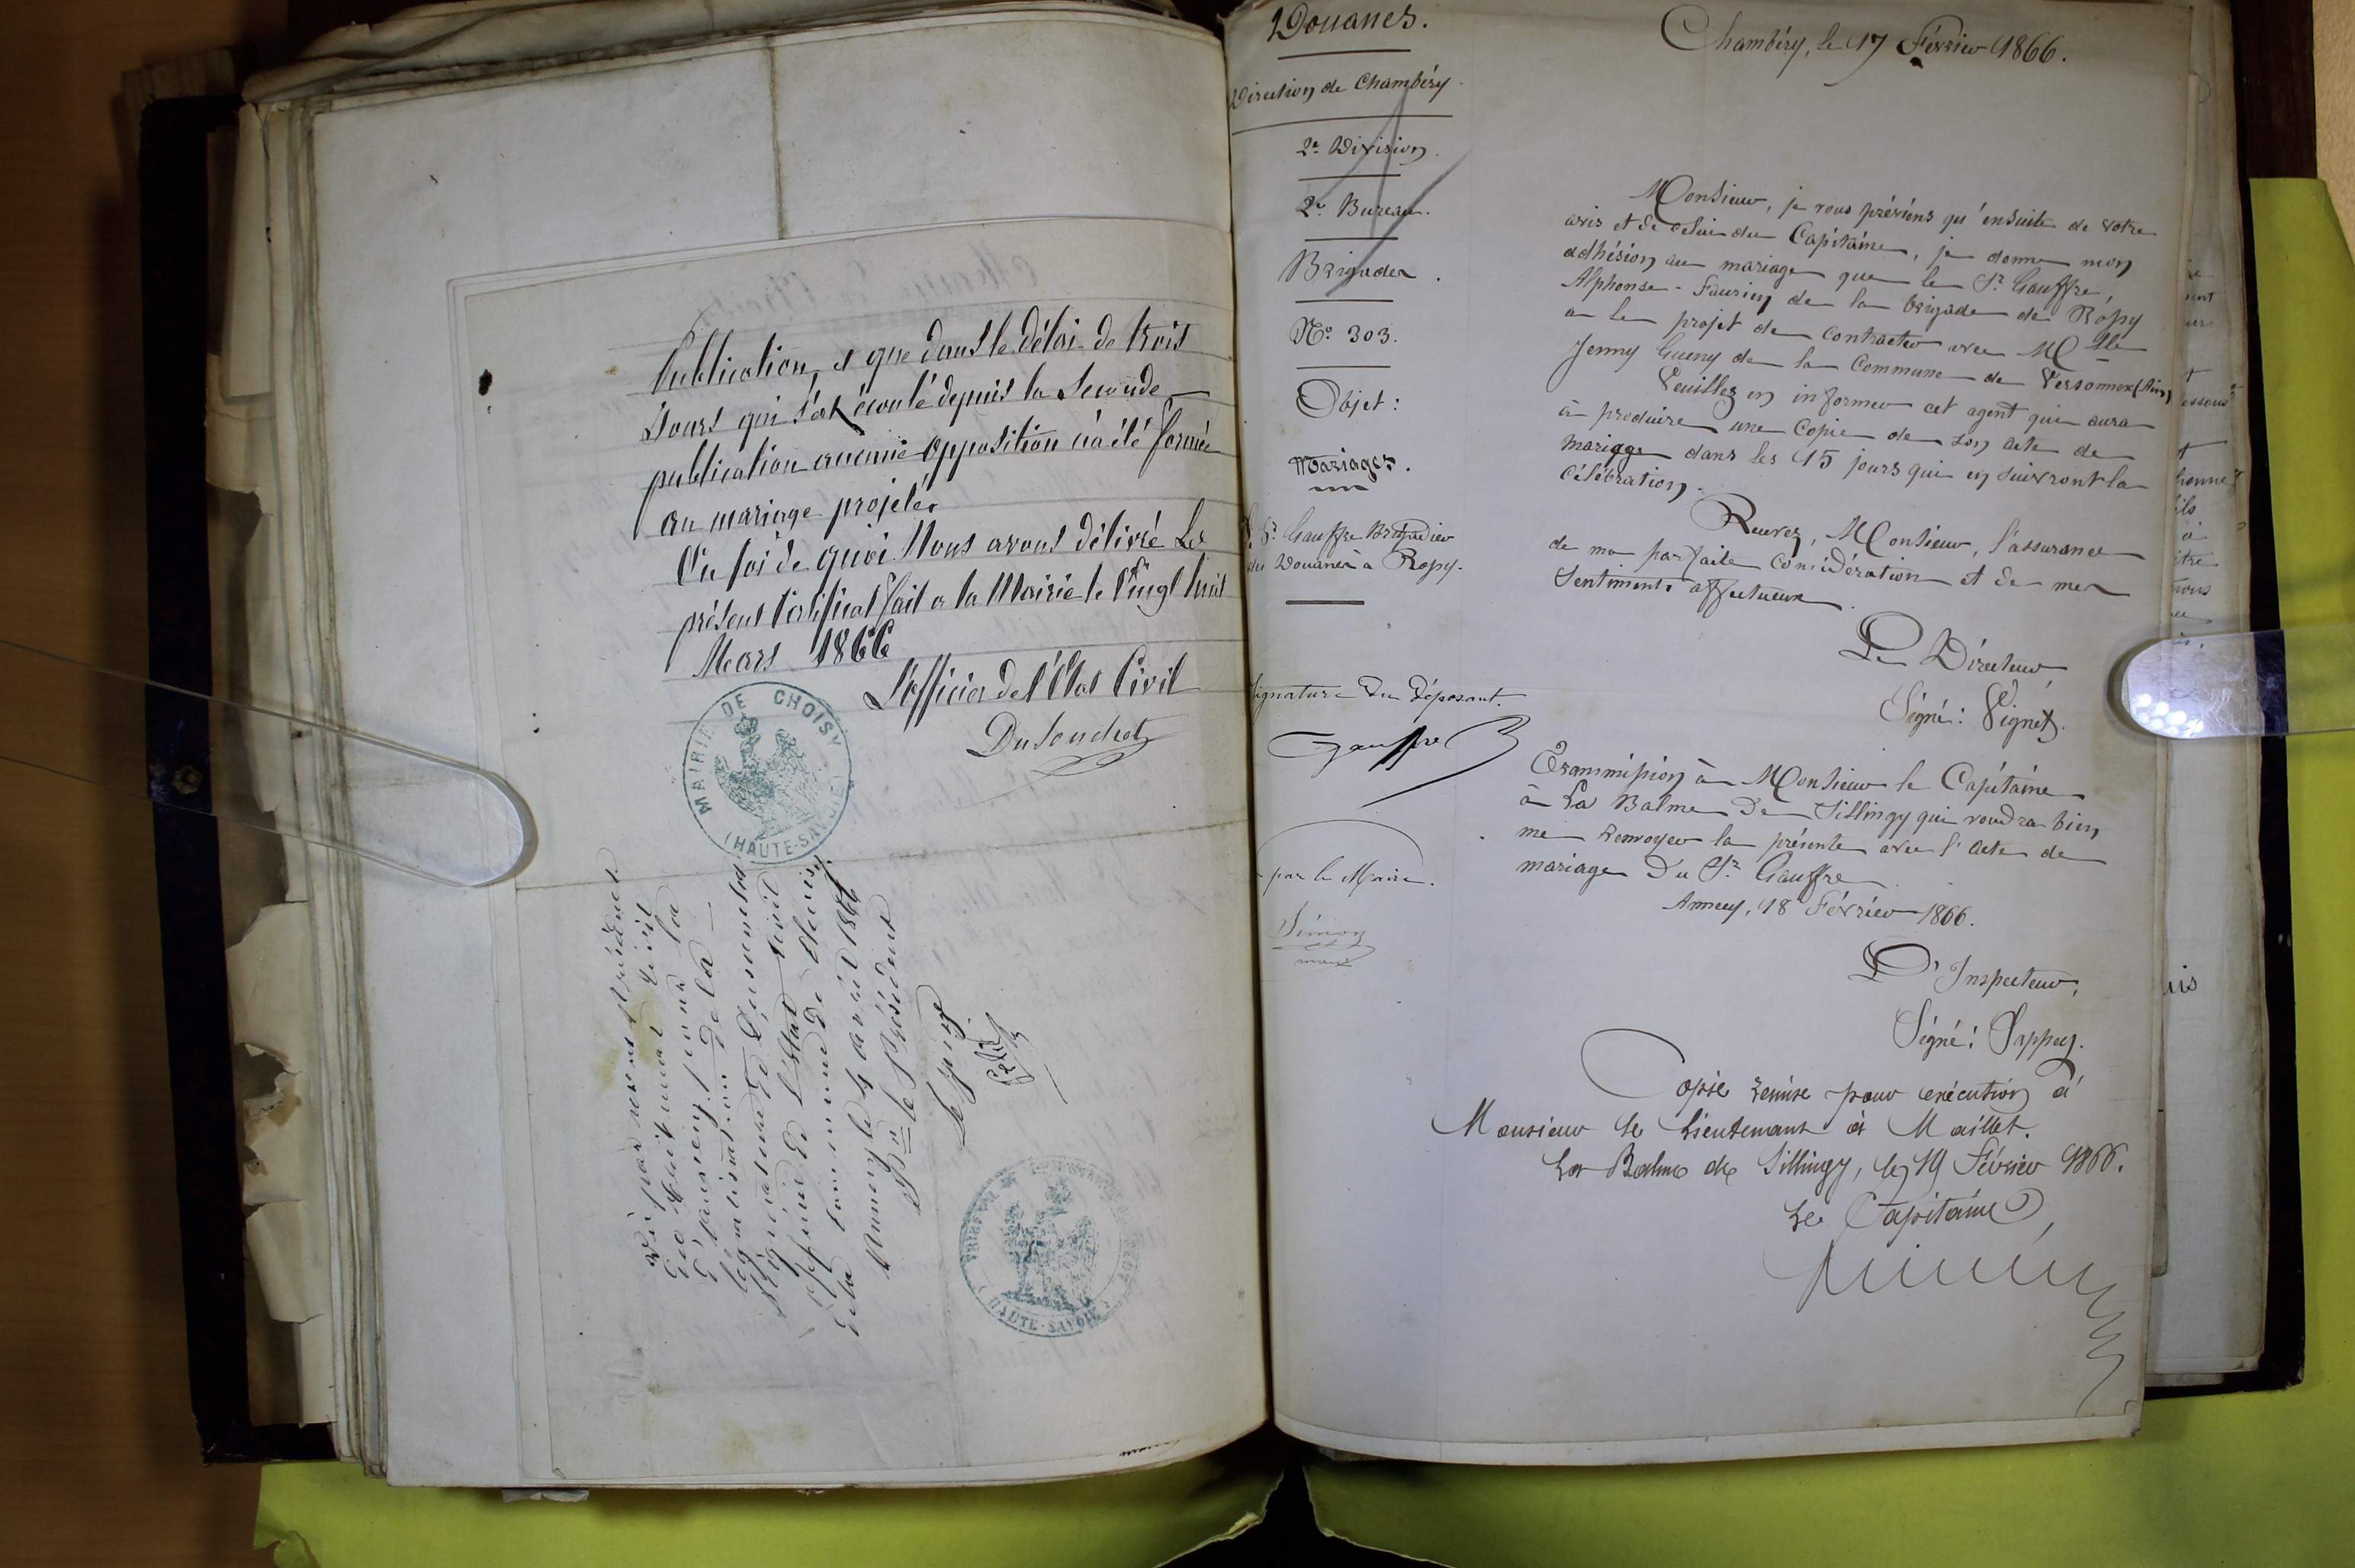 Publication, et que dans le délai de trois
Jours qui s'est écoulé depuis la Seconde
publication aucune opposition n'a été formée
au mariage projeté.
En foi de quoi Nous avons délivré Le
présent Certificat fait a la Mairie le Vingt huit
Mars 1866
L'officier de l'État Civil
Dusonchet
MAIRIE DE CHOISY
(HAUTE-SAVOIE)
Vu par nous Président
du tribunal civil
d'Annecy, pour la
légalisation de la
signature de
officier de l'État civil
de la commune de Choisy.
Annecy le 4 avril 1866
Pr le Président
Le juge
TRIBUNAL DE
(HAUTE-SAVOIE)
Douanes.
Direction de Chambéry
2e Division
2e Bureau.
Brigades.
No 303.
Objet :
Mariages.
Le Sr Gauffre Brigadier
des Douanes à Ropy.
Signature du Déposant.
Gauffre
par le Maire.
Simon
maire
Chambéry, le 17 Février 1866.
Monsieur, je vous préviens qu'ensuite de votre
avis et de celui du Capitaine, je donne mon
adhésion au mariage que le Sr Gauffre,
Alphonse-Faurien de la brigade de Ropy
a le projet de contracter avec Mlle
Jenny Gueny de la Commune de Versonnex (Ain)
Veuillez en informer cet agent qui aura
à produire une Copie de son acte de
mariage dans les 15 jours qui en suivront la
Célébration.
Recevez, Monsieur, l'assurance
de ma parfaite considération et de mes
Sentiments affectueux.
Le Directeur,
Signé : Vignet.
Transmission à Monsieur le Capitaine
à La Balme de Sillingy qui voudra bien
me renvoyer la présente avec l'acte de
mariage du Sr Gauffre.
Annecy, 18 Février 1866.
L'Inspecteur,
Signé : Sappey.
Copie remise pour exécution à
Monsieur le Lieutenant à Maillet.
La Balme de Sillingy, le 19 Février 1866.
Le Capitaine,